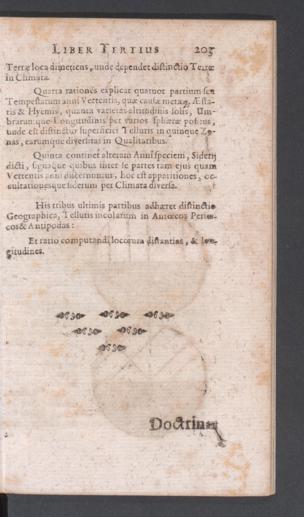 LIBER TERTIUS 205
Terræ loca dimetiens, unde dependet distinctio Terræ
in Climata.
Quarta rationes explicat quatuor partium seu
Tempestatum anni Vertentis, quæ causæ metæq, Æsta-
tis & Hyemis, quanta varietas altitudinis solis, Um-
brarumque Longitudinis per varios sphæræ positus,
unde est distinctio superficiei Telluris in quinque Zo-
nas, earumque diversitas in Qualitatibus.
Quinta continet alteram Anni speciem, Siderij
dicti, signaque quibus inter se partes tam ejus quam
Vertentis anni discernuntur, hoc est apparitiones, oc-
cultationesque siderum per Climata diversa.
His tribus ultimis partibus adhæret distinctio
Geographica, Telluris incolarum in Antœcos Periœ-
cos & Antipodas:
Et ratio computandi locorum distantias, & lon-
gitudines.
Doctrinæ